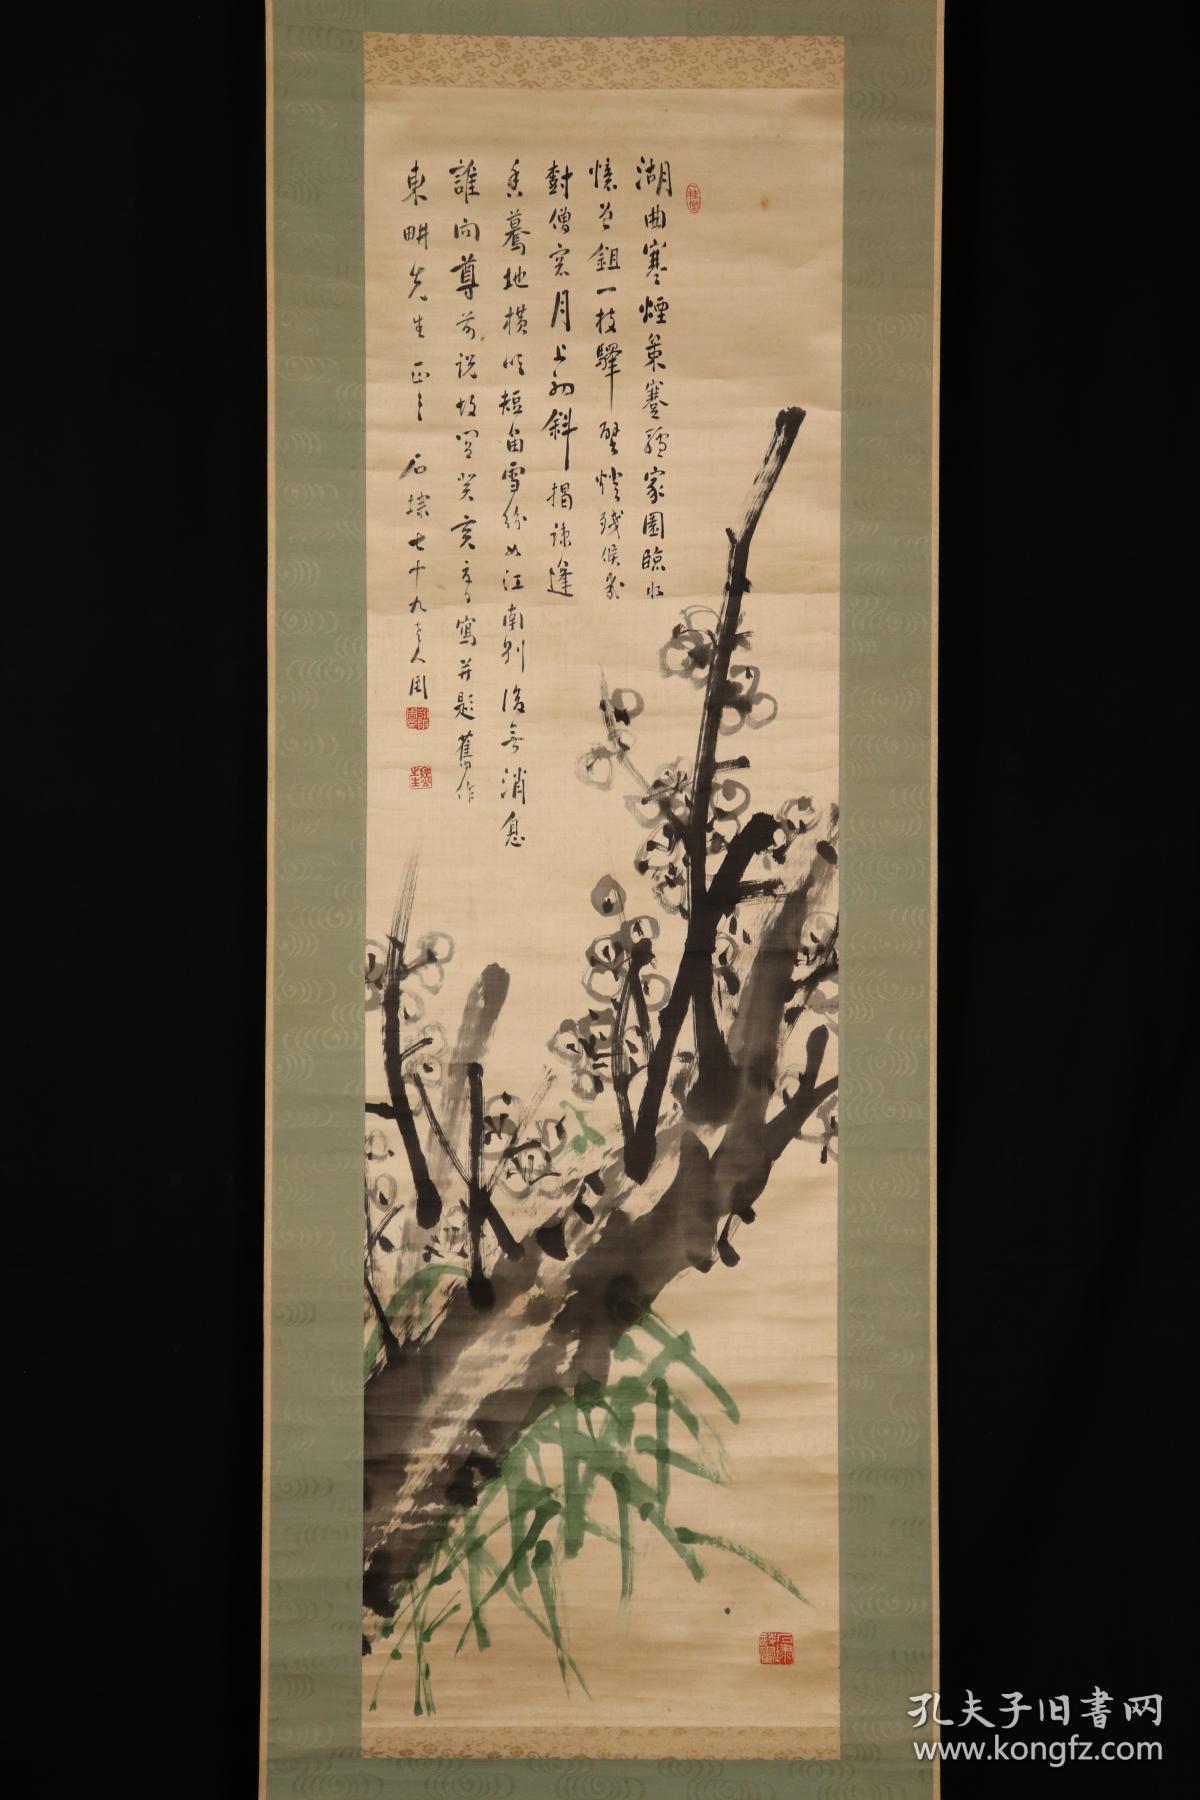 湖曲寒煙策蹇驢家園臨水
憶芒鉏一枝驛壁燈殘候数
對僧窓月上初斜揭疎逢
香驀地橫吹短笛雪紛如江南別後無消息
誰向尊前說故園癸亥春日寫并題舊作
東畊先生正之 石㻞七十九老人周
孔夫子旧书网
www.kongfz.com